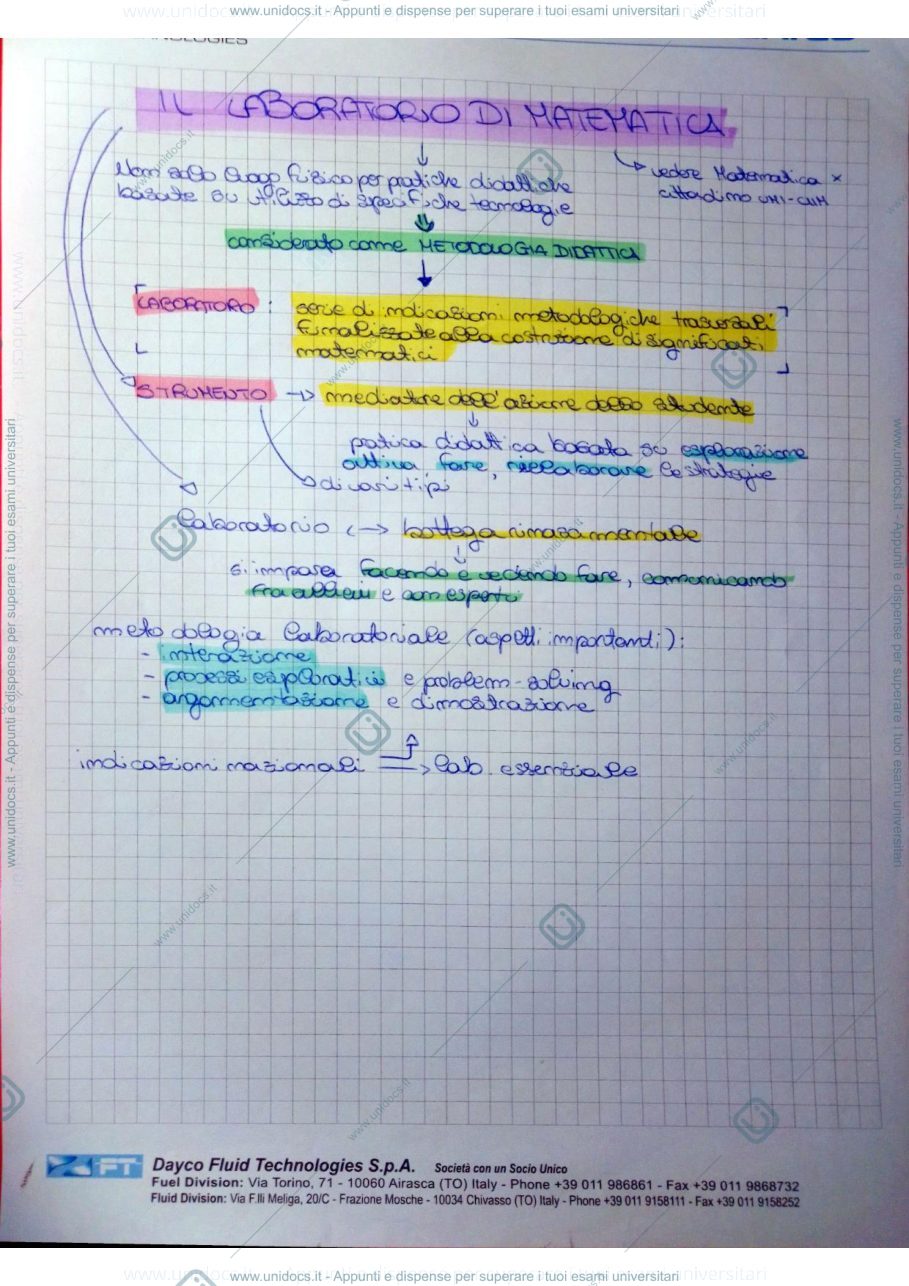 www.unidocs.it - Appunti e dispense per superare i tuoi esami universitari
IL LABORATORIO DI MATEMATICA
Non solo luogo fisico per pratiche didattiche
basate su utilizzo di specifiche tecnologie
vedere Matematica x
cittadino UMI-CIIM
considerato come METODOLOGIA DIDATTICA
LABORATORIO :
serie di indicazioni metodologiche trasversali
finalizzate alla costruzione di significati
matematici
STRUMENTO → mediatore dell'azione dello studente
pratica didattica basata su esplorazione
attiva fare, rielaborare le strategie
di vari tipi
laboratorio ↔ bottega rinascimentale
si impara facendo e vedendo fare, comunicando
fra allievi e con esperti
metodologia laboratoriale (aspetti importanti):
- interazione
- processi esplorativi e problem-solving
- argomentazione e dimostrazione
indicazioni nazionali → lab. essenziale
FT
Dayco Fluid Technologies S.p.A. Società con un Socio Unico
Fuel Division: Via Torino, 71 - 10060 Airasca (TO) Italy - Phone +39 011 986861 - Fax +39 011 9868732
Fluid Division: Via F.lli Meliga, 20/C - Frazione Mosche - 10034 Chivasso (TO) Italy - Phone +39 011 9158111 - Fax +39 011 9158252
www.unidocs.it - Appunti e dispense per superare i tuoi esami universitari
www.unidocs.it - Appunti e dispense per superare i tuoi esami universitari
www.unidocs.it - Appunti e dispense per superare i tuoi esami universitari